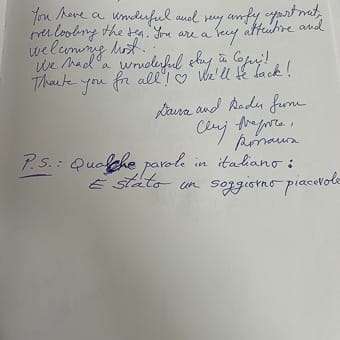 You have a wonderful and very comfy apartment,
overlooking the sea. You are a very attentive and
welcoming host.
We had a wonderful stay in Capri!
Thank you for all! ♡ We'll be back!
and Radu from
Cluj Napoca,
Romania
P.S.: Qualche parole in italiano:
E stato un soggiorno piacevole